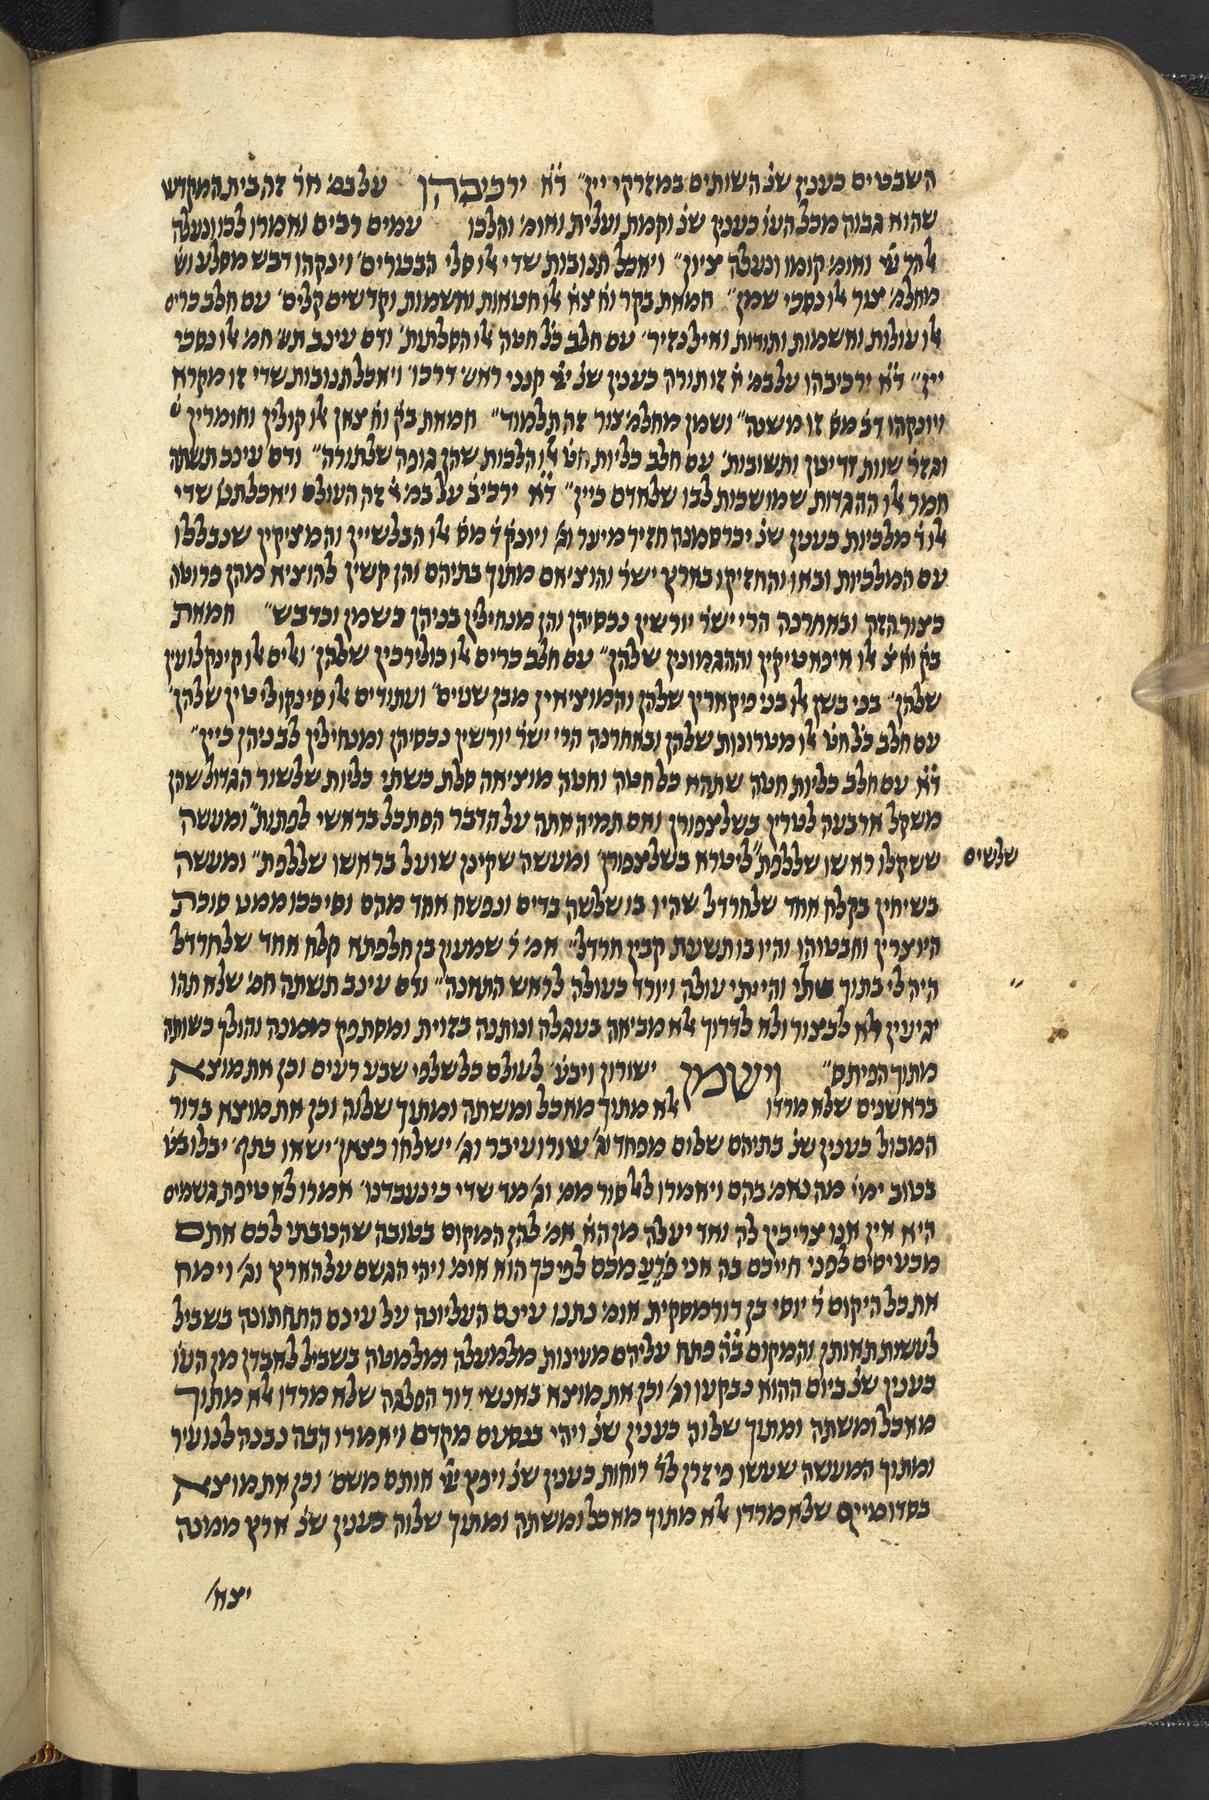 השבטים כענין שנ׳ השותים במזרקי יין״ ד״א ירכיבהו על במ׳ אר׳ זה בית המקדש
שהוא גבוה מכל העו׳ כענין שנ׳ וקמת ועלית ואומ׳ והלכו עמים רבים ואמרו לכו ונעלה
אל הר יי׳ ואומ׳ קומו ונעלה ציון״ ויאכל תנובות שדי אלו סלי הבכורים׳ וינקהו דבש מסלע וש׳
מחלמ׳ צור אלו נסכי שמן״ חמאת בקר וח׳ צא׳ אלו חטאות ואשמות וקדשים קלים׳ עם חלב כרים
אלו עולות ואשמות ותודות ואיל נזיר׳ עם חלב כל׳ חטה אלו הסלתות׳ ודם עינב תש׳ חמ׳ אלו נסכי
יין״ ד״א ירכיבהו על במ׳ א׳ זו תורה כענין שנ׳ יי׳ קנני ראש׳ דרכו׳ ויאכל תנובות שדי זו מקרא
ויונקהו דב׳ מס׳ זו משנה״ ושמן מחלמ׳ צור זה תלמוד״ חמאת בק׳ וח׳ צאן אלו קולין וחומרין
וגזר׳ שוות ודינין ותשובות׳ עם חלב כליות חט׳ אלו הלכות שהן גופה שלתורה״ ודם עינב תשתה
חמר אלו ההגדות שמושכות לבו שלאדם כיין״ ד״א ירכיב׳ על במ׳ א׳ זה העולם ויאכל תנ׳ שדי
אלו ד׳ מלכיות כענין שנ׳ יכרסמנה חזיר מיער וג׳ ויונק׳ ד׳ מס׳ אלו הבלשיין והמציקין שנבללו
עם המלכיות ובאו והחזיקו בארץ ישר׳ והוציאם מתוך בתיהם והן קשין להוציא מהן פרוטה
כצור הזה ובאחרנה הרי ישר׳ יורשין נכסיהן והן מנחילין בניהן בשמן ובדבש״ חמאת
בק׳ וח׳ צ׳ אלו איפאטיקין וההגמונין שלהן״ עם חלב כרים אלו כולירכין שלהן׳ ואלים אלו קינקלועין
שלהן״ בני בשן אלו בני פיקארין שלהן והמוציאין מבן שנים״ ועתודים אלו סינקולי טין שלהן׳
עם חלב כל׳ חט׳ אלו מטרונות שלהן ובאחרנה הרי ישר׳ יורשין נכסיהן ומנחילין לבניהן כיין״
ד״א עם חלב כליות חטה שתהא כל חטה וחטה מוציאה סלת כשתי כליות שלשור הגדול שהן
משקל ארבעה לטרין בשלצפורן ואם תמיה אתה על הדבר הסתכל בראשי לפתות״ ומעשה
ששקלו ראשו שללפת״ ליטרא בשלצפורן׳ ומעשה שקינן שועל בראשו שללפת״ ומעשה
שלשים
בשיחין בקלח אחד שלחרדל שהיו בו שלשה בדים ונפשח אחד מהם וסיככו ממט סוכת
היוצרין וחבטוהו והיו בו תשעת קבין חרדל״ אמ׳ ר׳ שמעון בן חלפתא קלח אחד שלחרדל
היה לי בתוך שלי והייתי עולה ויורד כעולה לראש התאנה״ ודם עינב תשתה חמ׳ שלא תהו
יגיעין לא לבצור ולא לדרוך אלא מביאה בעגלה ונותנה בזוית ומסתפק ממנה והולך כשותה
מתוך הפיתס״ וישמן ישורון ויבע׳ לעולם כל שלפי שבע רעים וכן את מוצא
בראשנים שלא מרדו אלא מתוך מאכל ומשתה ומתוך שלוה וכן את מוצא בדור
המבול כענין שנ׳ בתיהם שלום מפחד וג׳ שורו עיבר וג׳ ישלחו כצאן׳ ישאו כתף׳ יבלו וכט׳
בטוב ימי׳ מה נאמ׳ בהם ויאמרו לאל סור ממ׳ וג׳ מה שדי כי נעבדנו׳ אמרו לא טיפת גשמים
היא אין אנו צריכין לה ואד יעלה מן הא׳ אמ׳ להן המקום בטובה שהטבתי לכם אתם
מכעיסים לפני חייכם בה אני פרע מכם לפיכך הוא אומ׳ ויהי הגשם על הארץ וג׳ וימח
את כל היקום ר׳ יוסי בן דורמסקית אומ׳ נתנו עינם העליונה על עינם התחתונה בשביל
לעשות תאותן והמקום ב״ה פתח עליהם מעינות מלמעלה ומלמטה בשביל לאבדן מן העו׳
כענין שנ׳ ביום ההוא נבקעו וג׳ וכן את מוצא באנשי דור הפלגה שלא מרדו אלא מתוך
מאכל ומשתה ומתוך שלוה כענין שנ׳ ויהי בנסעם מקדם ויאמרו הבה נבנה לנו עיר
ומתוך המעשה שעשו פיזרן לד׳ רוחות כענין שנ׳ ויפץ יי׳ אותם משם׳ וכן את מוצא
בסדומיים שלא מרדו אלא מתוך מאכל ומשתה ומתוך שלוה כענין שנ׳ ארץ ממנה
יצא׳